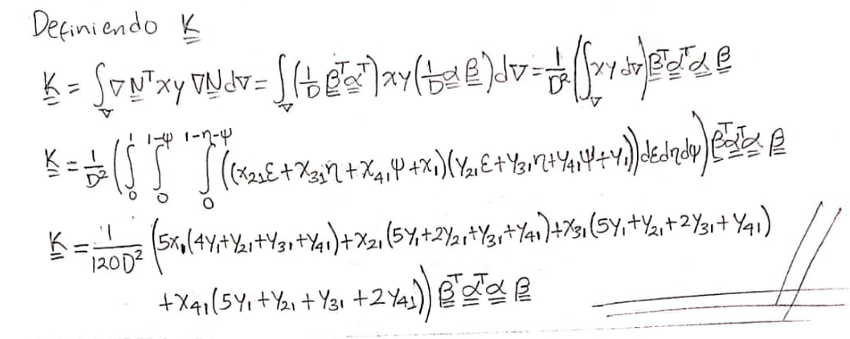 Definiendo K
K = ∫_v ∇N^T xy ∇N dv = ∫_v (1/D β^T α^T) xy (1/D α β) dv = 1/D² (∫_v xy dv) β^T α^T α β
K = 1/D² (∫_0^1 ∫_0^{1-ψ} ∫_0^{1-η-ψ} ((x₂₁ε + x₃₁η + x₄₁ψ + x₁)(y₂₁ε + y₃₁η + y₄₁ψ + y₁)) dε dη dψ) β^T α^T α β
K = 1/120D² (5x₁(4y₁ + y₂₁ + y₃₁ + y₄₁) + x₂₁(5y₁ + 2y₂₁ + y₃₁ + y₄₁) + x₃₁(5y₁ + y₂₁ + 2y₃₁ + y₄₁)
+ x₄₁(5y₁ + y₂₁ + y₃₁ + 2y₄₁)) β^T α^T α β